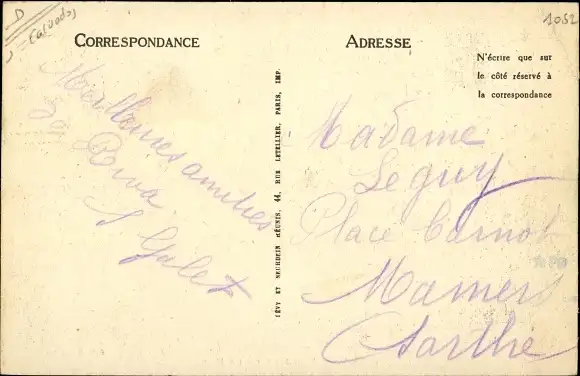 D
Calvados
1052
CORRESPONDANCE
ADRESSE
N'écrire que sur
le côté réservé à
la correspondance
Meilleures amitiés
S Galet
LÉVY ET NEURDEIN RÉUNIS, 44, RUE LETELLIER, PARIS, IMP.
Madame
Leguy
Place Carnot
Mamers
Sarthe